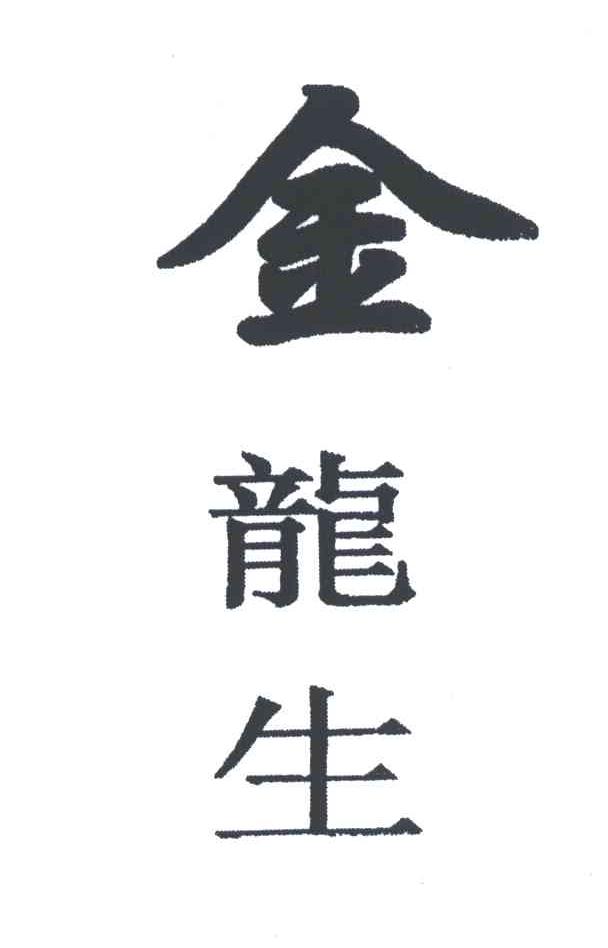 金龍生